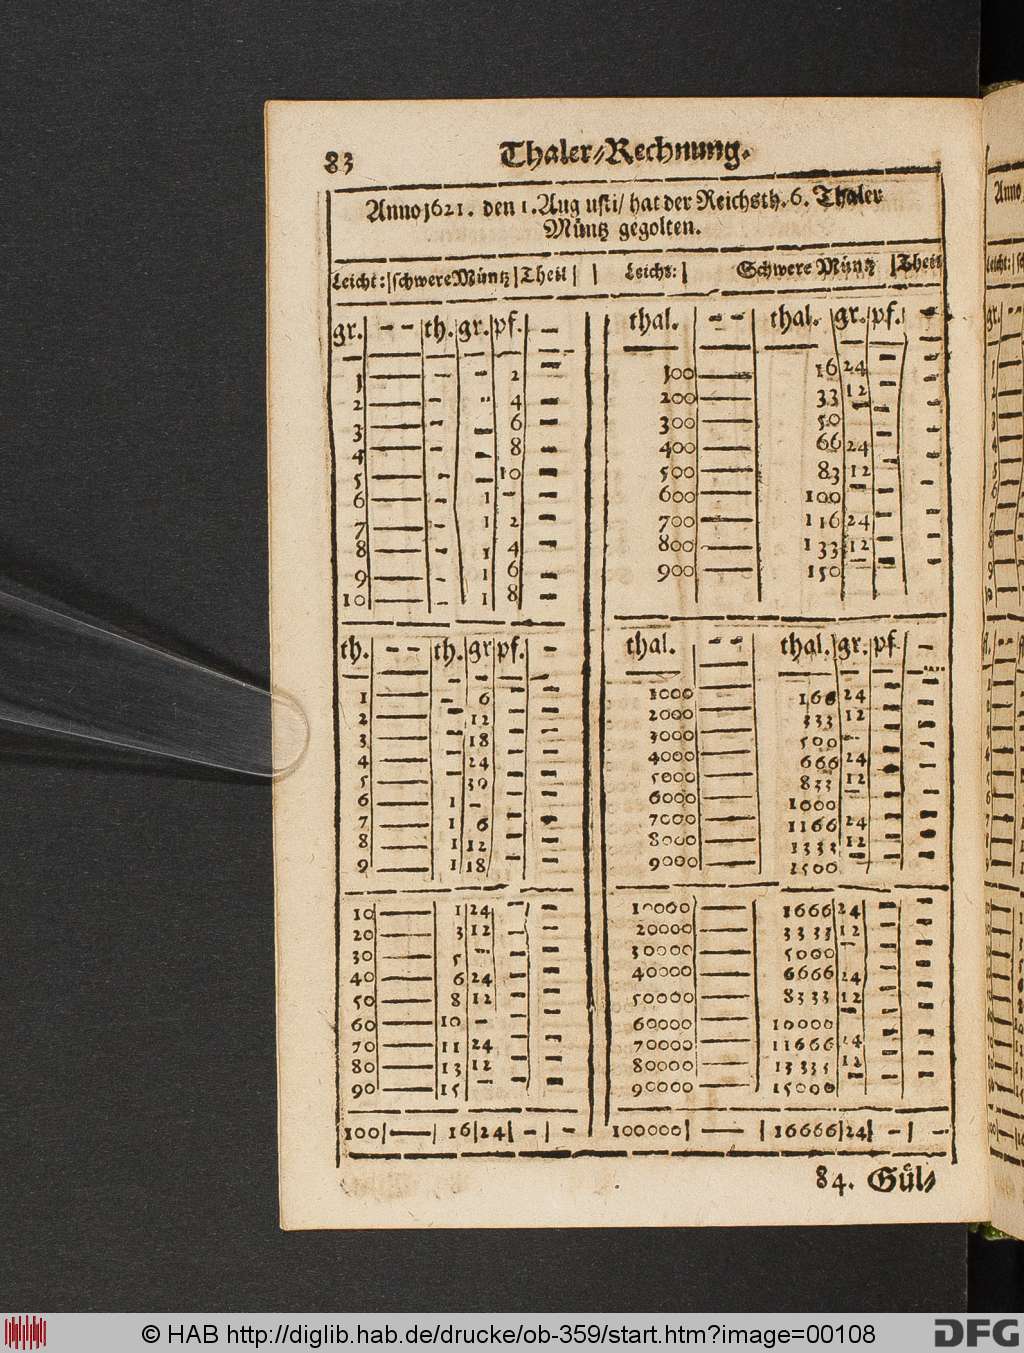 83 Thaler-Rechnung.
Anno 1621. den 1. Augusti/ hat der Reichsth. 6. Thaler
Müntz gegolten.
Leicht: | schwere Müntz | Theil | | Leicht: | Schwere Müntz | Theil
gr. — — th. gr. pf. — thal. — — thal. gr. pf. —
1 — — — 2 — 100 — 16 24 — —
2 — — — 4 — 200 — 33 12 — —
3 — — — 6 — 300 — 50 — — —
4 — — — 8 — 400 — 66 24 — —
5 — — — 10 — 500 — 83 12 — —
6 — — 1 — — 600 — 100 — — —
7 — — 1 2 — 700 — 116 24 — —
8 — — 1 4 — 800 — 133 12 — —
9 — — 1 6 — 900 — 150 — — —
10 — — 1 8 —
th. — — th. gr pf. — thal. — — thal. gr. pf —
1 — — 6 — — 1000 — 166 24 — —
2 — — 12 — — 2000 — 333 12 — —
3 — — 18 — — 3000 — 500 — — —
4 — — 24 — — 4000 — 666 24 — —
5 — — 30 — — 5000 — 833 12 — —
6 — 1 — — — 6000 — 1000 — — —
7 — 1 6 — — 7000 — 1166 24 — —
8 — 1 12 — — 8000 — 1333 12 — —
9 — 1 18 — — 9000 — 1500 — — —
10 — 1 24 — — 10000 — 1666 24 — —
20 — 3 12 — — 20000 — 3333 12 — —
30 — 5 — — — 30000 — 5000 — — —
40 — 6 24 — — 40000 — 6666 24 — —
50 — 8 12 — — 50000 — 8333 12 — —
60 — 10 — — — 60000 — 10000 — — —
70 — 11 24 — — 70000 — 11666 24 — —
80 — 13 12 — — 80000 — 13333 12 — —
90 — 15 — — — 90000 — 15000 — — —
100 | — | 16 | 24 | — | — 100000 | — | 16666 | 24 | — | —
84. Gül-
Anno
Leicht:
gr.
© HAB http://diglib.hab.de/drucke/ob-359/start.htm?image=00108
DFG